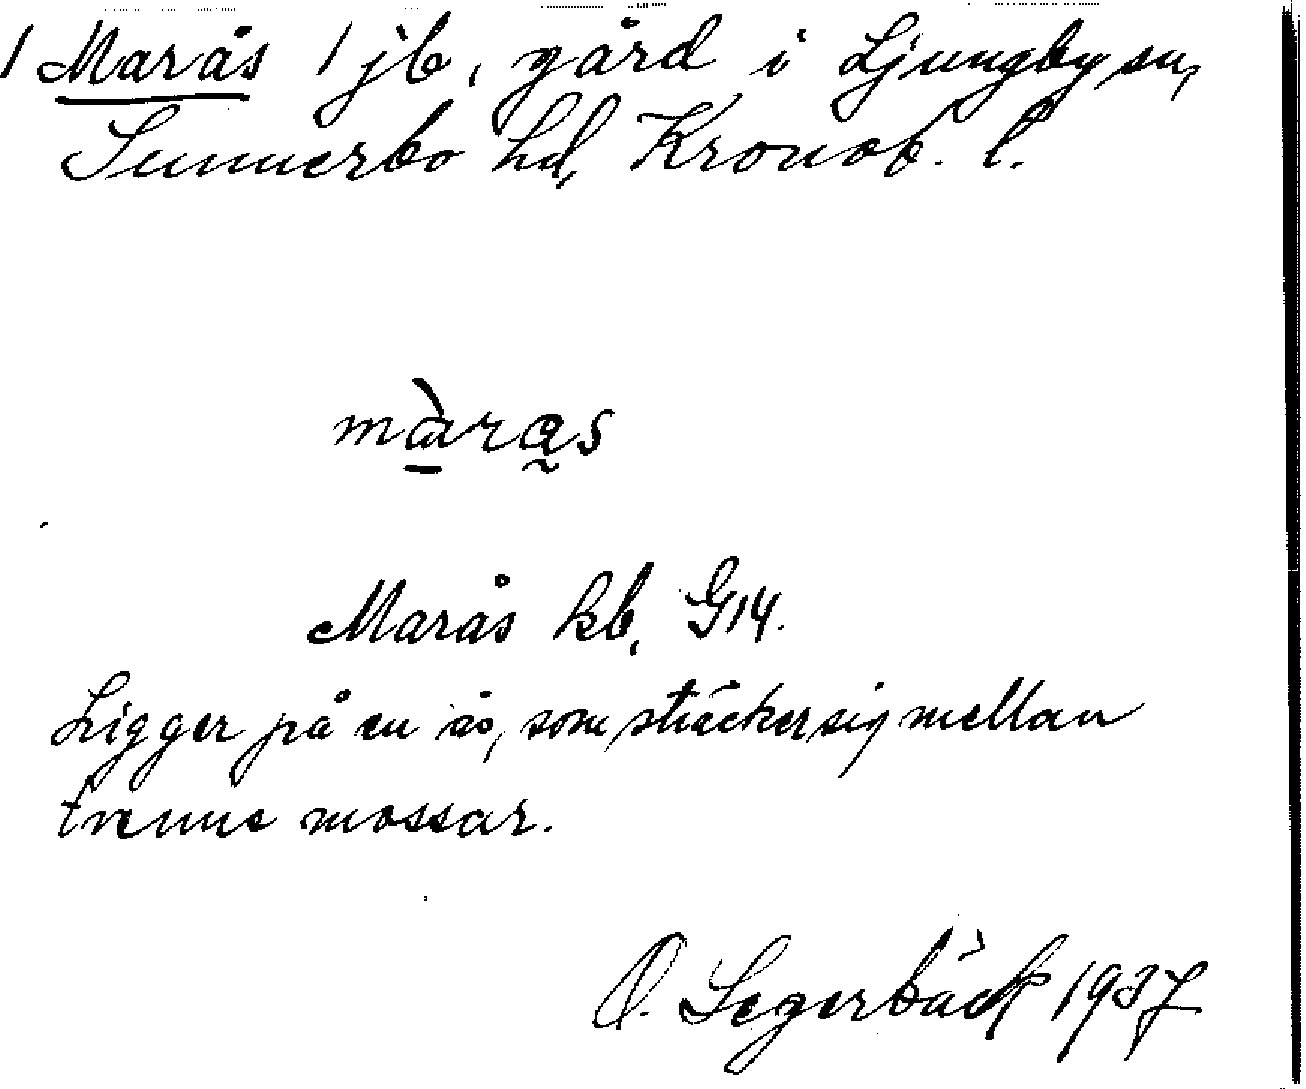 / Marås / jb, gård i Ljungby sn,
Sunnerbo hd, Kronob. l.
màrås
Marås kb, G14.
Ligger på en ås, som sträcker sig mellan
trenne mossar.
O. Segerbäck 1937